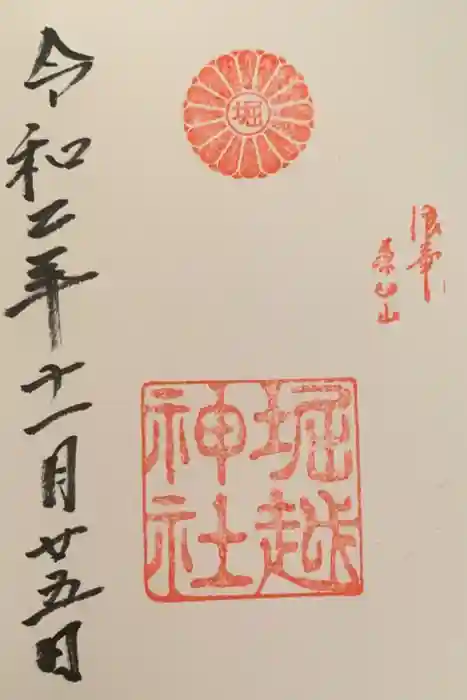 浪華
茶臼山
堀
堀越
神社
令和二年十一月廿五日